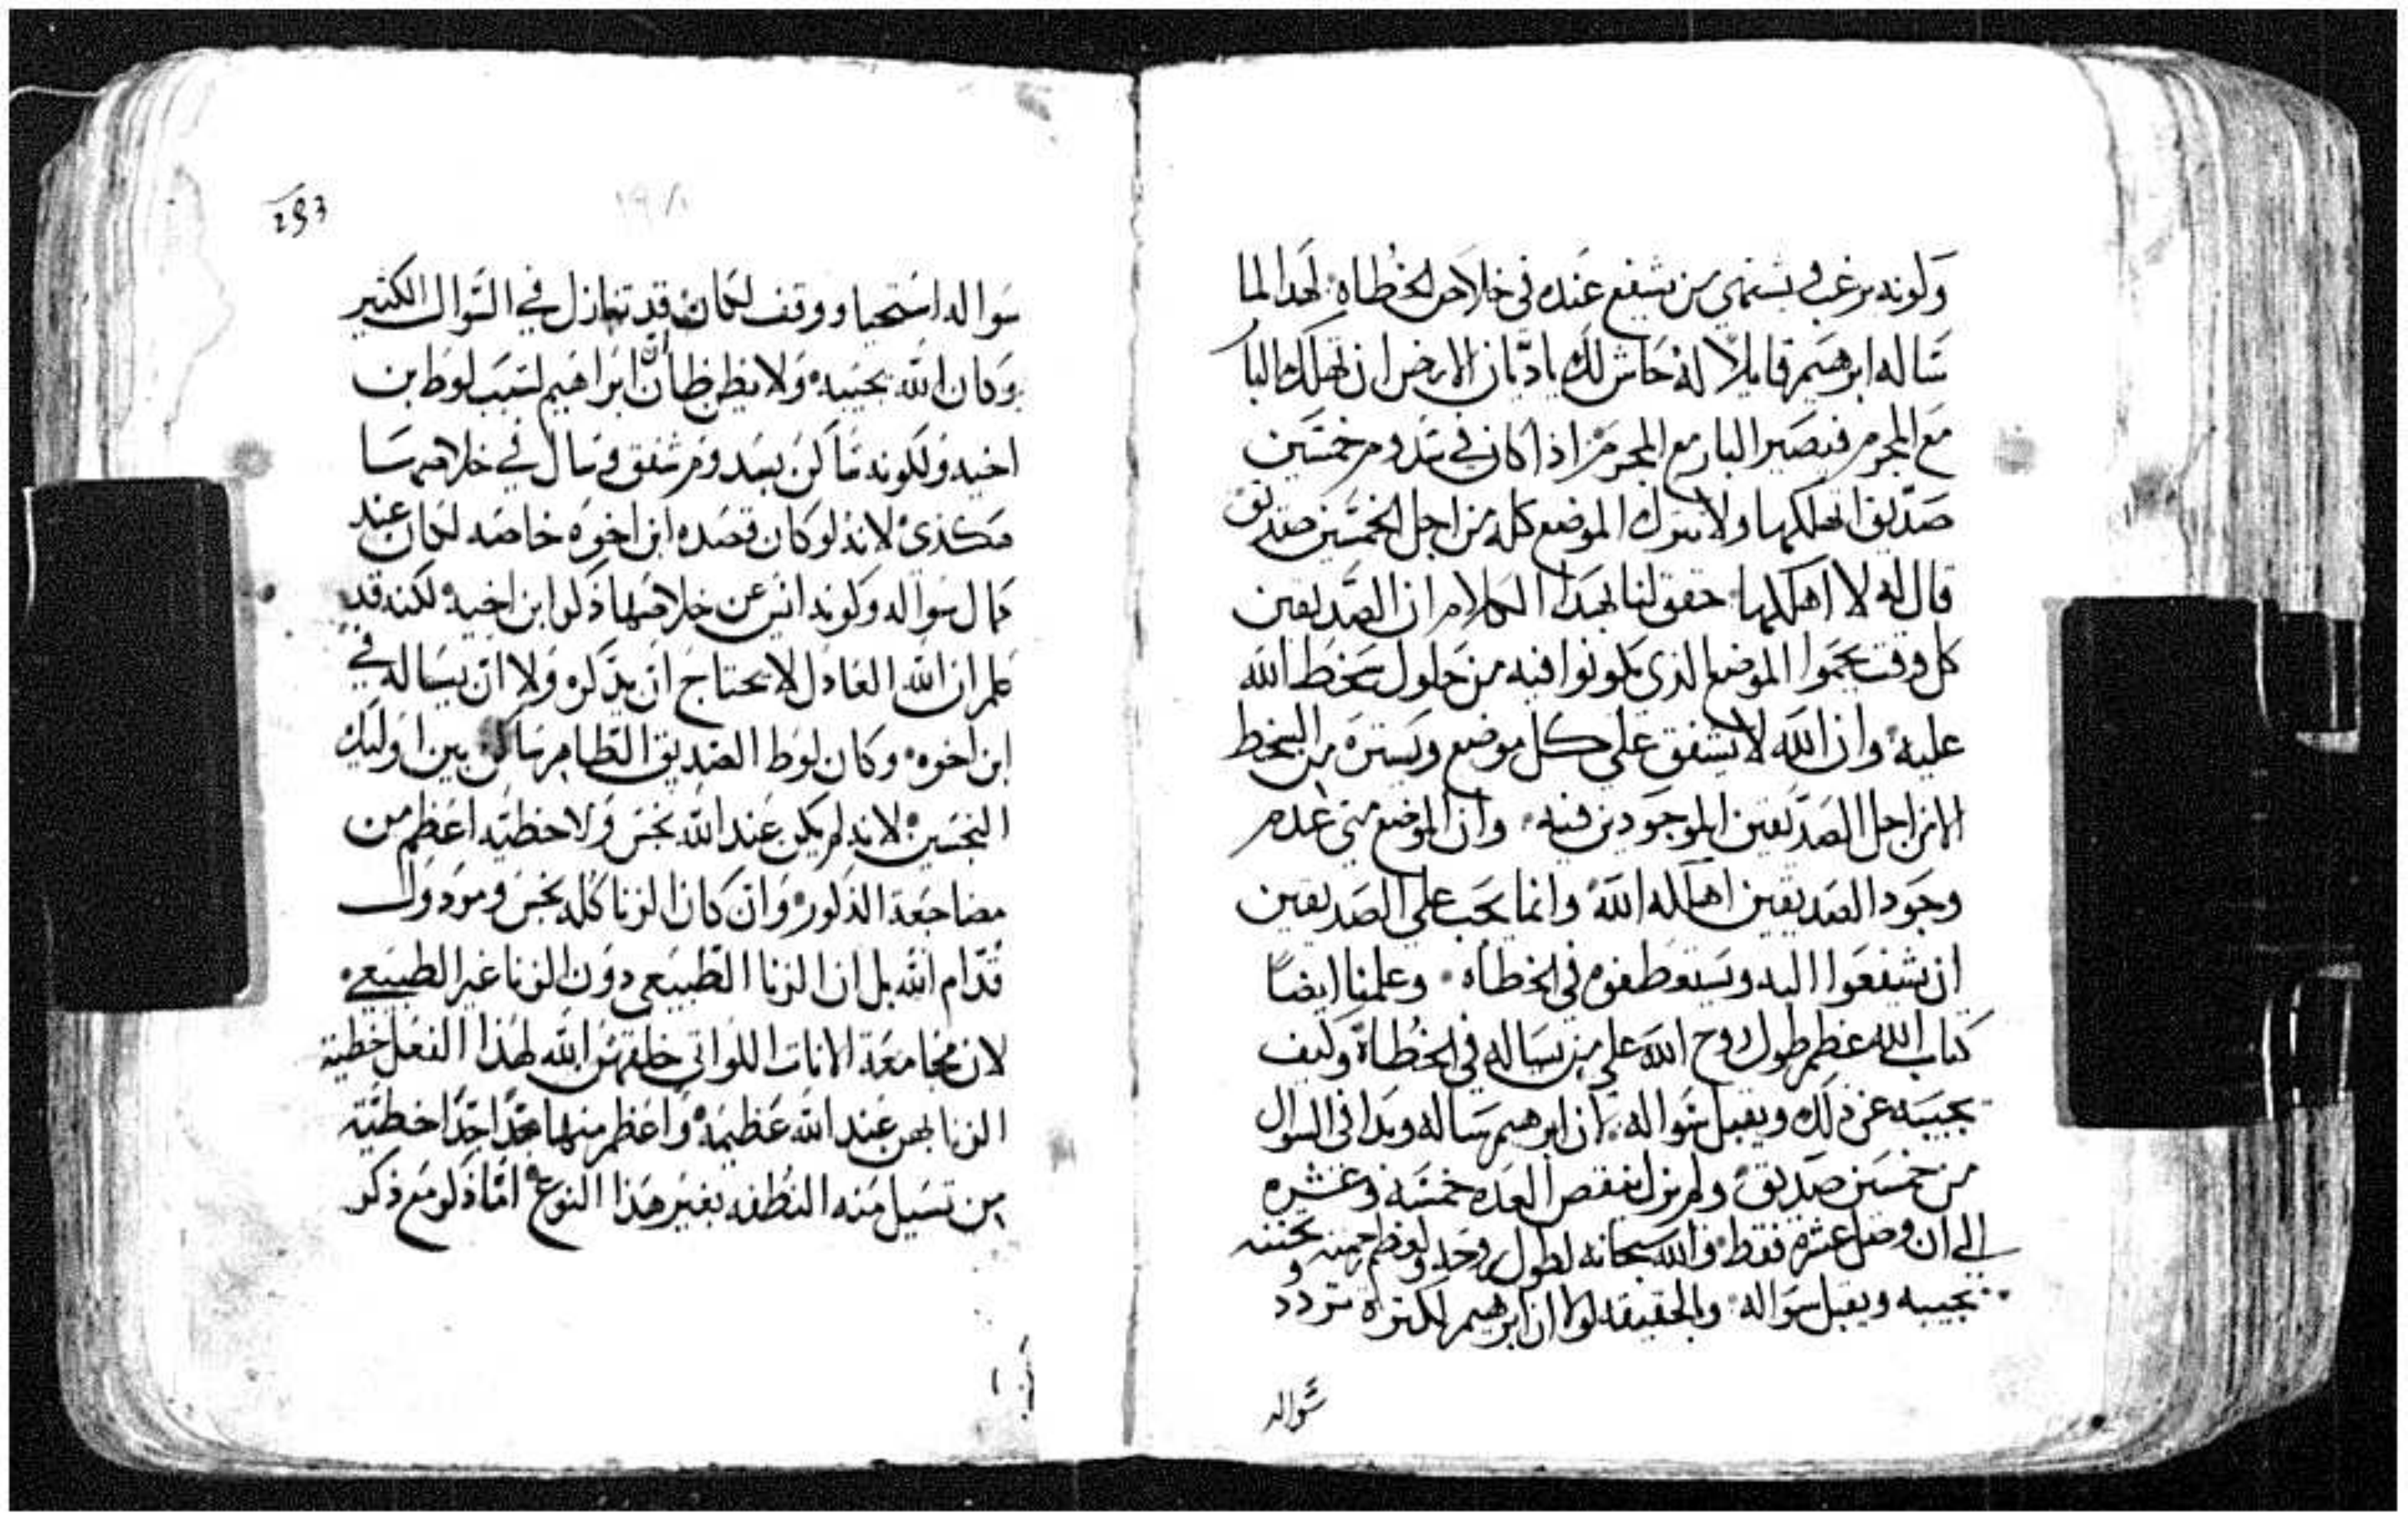 ولكونه يرغب ويشتهي من يشفع عنده في خلاص الخطاه لهدا لما
ساله ابرهيم قايلاً له حاش لك يا ديان الارض ان تهلك البار
مع المجرم فيصير البار مع المجرم اذا كان في سدوم خمسين
صديق اتهلكهما ولا تترك الموضع كله من اجل الخمسين صديق
قال له لا اهلكهما حقق لنا بهدا الكلام ان الصديقين
كل وقت يحموا الموضع الذي يكونوا فيه من حلول سخط الله
عليه وان الله لا يشفق على كل موضع ويستره من السخط
الا من اجل الصديقين الموجودين فيه وان الموضع متى عدم
وجود الصديقين اهلكه الله وانما يجب على الصديقين
ان يشفعوا اليه ويستعطفوه في الخطاه وعلمنا ايضاً
كتاب الله عظم طول روح الله على من يساله في الخطاة وكيف
يجيبه عن ذلك ويقبل سواله ان ابرهيم ساله وبدا في السوال
من خمسين صديق ولم يزل ينقص العده خمسه وعشره
الى ان وصل عشره فقط والله سبحانه لطول روحه ولعظم رحمته وتحننه
يجيبه ويقبل سواله وبالحقيقه لولا ان ابرهيم لكترة تردد
سواله
293
سواله استحيا ووقف لكان قد تنازل في السوال الكثير
وكان الله يجيبه ولا يظن ظاناً ان ابراهيم لسبب لوط بن
اخيه ولكونه ساكن بسدوم شفق وسال في خلاصهما
هكذي لانه لو كان قصده ابن اخوه خاصه لكان عند
كمال سواله ولكونه انس عن خلاصهما ذكر ابن اخيه لكنه قد
علم ان الله العادل لا يحتاج ان يذكره ولا ان يساله في
ابن اخوه وكان لوط الصديق الطاهر ساكن بين اوليك
النجسين لانه لم يكن عند الله نجس ولا خطيه اعظم من
مضاجعة الذكور وان كان الزنا كله نجس ومردول
قدام الله بل ان الزنا الطبيعي دون الزنا غير الطبيعي
لان مجامعة الاناث اللواتي خلقهن الله لهذا الفعل خطية
الزنا بهن عند الله عظيمه واعظم منها جداً جداً خطية
من تسيل منه النطفه بغير هذا النوع اما ذكر مع ذكر